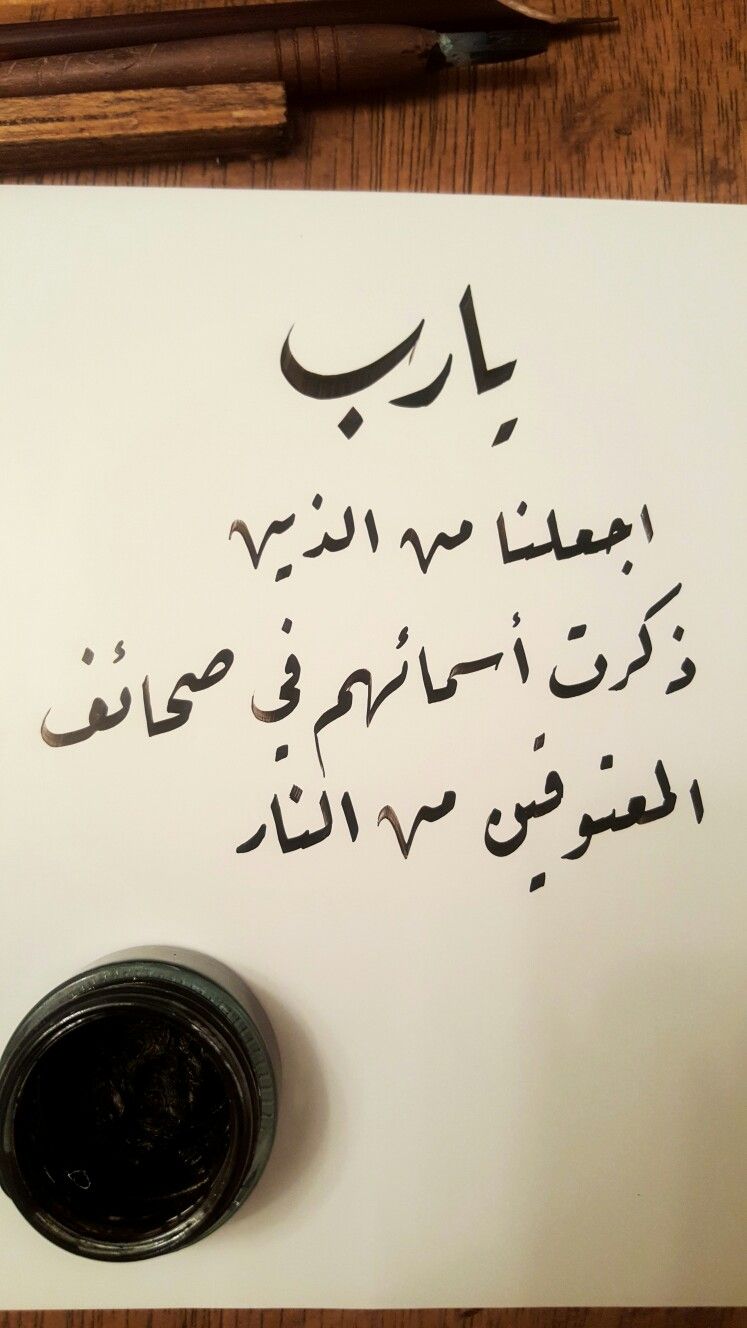 يا رب
اجعلنا من الذين
ذكرت أسمائهم في صحائف
المعتوقين من النار